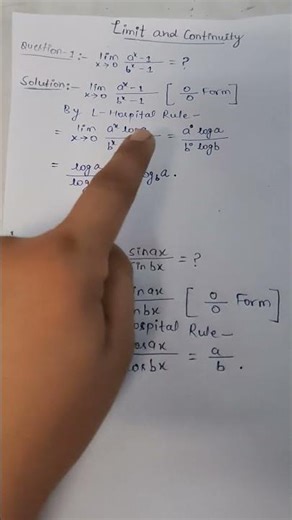 Limit and Continuity
Question-1:- lim x→0 a^x-1 / b^x-1 = ?
Solution:- lim x→0 a^x-1 / b^x-1 [0/0 Form]
By L-Hospital Rule-
= lim x→0 a^x log / b^x = a° log a / b° log b
= log a / log b a.
sin ax / bx = ?
ax / bx [0/0 Form]
Rule-
ax / bx = a/b.